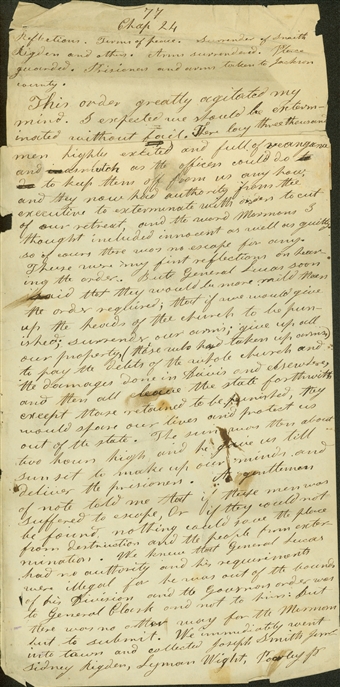 77
Chap 24
Reflections. Terms of peace. Surrender of Smith
Rigdon and others. Arms surrendered. Place
guarded. Prisoners and arms taken to Jackson
county.
This order greatly agitated my
mind. I expected we should be exterm-
inated without fail. There lay three thousand
men highly excited and full of veangance
and as much as the officers could do
to keep them off from us any how,
and they now had authority from the
executive to exterminate with orders to cut
off our retreat, and the word Mormons I
thought included innocent as well as guilty
so of cours there was no escape for any.
These were my first reflections on hear-
ing the order. But General Lucas soon
said that they would be more mild than
the order required; that if we would give
up the heads of the church to be pun-
ished; surrender our arms; give up all
our property (those who had taken up arms)
to pay the debts of the whole church and
the damages done in Davis and elsewhere
and then all leave the state forthwith
except those retained to be punished, they
would spare our lives and protect us
out of the state. The sun was then about
two hours high and he gave us till
sunset to make up our minds and
deliver the prisoners. A gentleman
of note told me that if these men was
suffered to escape, Or if they could not
be found, nothing could save the place
from destruction and the people from exter-
mination. We knew that General Lucas
had no authority and his requirements
were illegal for he was out of the bounds
of his Division and the Governors order was
to General Clark and not to him: but
there was no other way for the Mormons
but to submit. We immediately went
into town and collected Joseph Smith jun
Sidney Rigdon, Lyman Wight, Parley